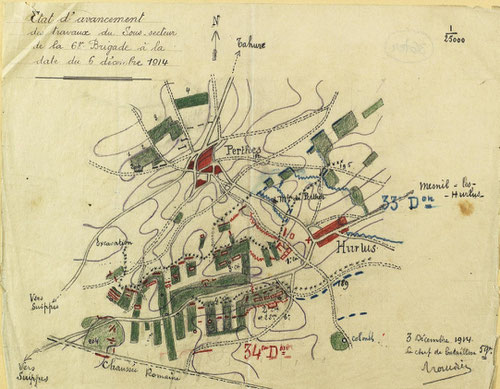 Etat d'avancement
des travaux du Sous-secteur
de la 68e Brigade à la
date du 6 décembre 1914
N
Tahure
1
25000
Perthes
Mesnil-les-
Hurlus
33e Don
Hurlus
Excavation
189
Vers
Suippes
colonel
34e Don
Vers
Suippes
Chaussée Romaine
3 Décembre 1914.
Le chef de bataillon